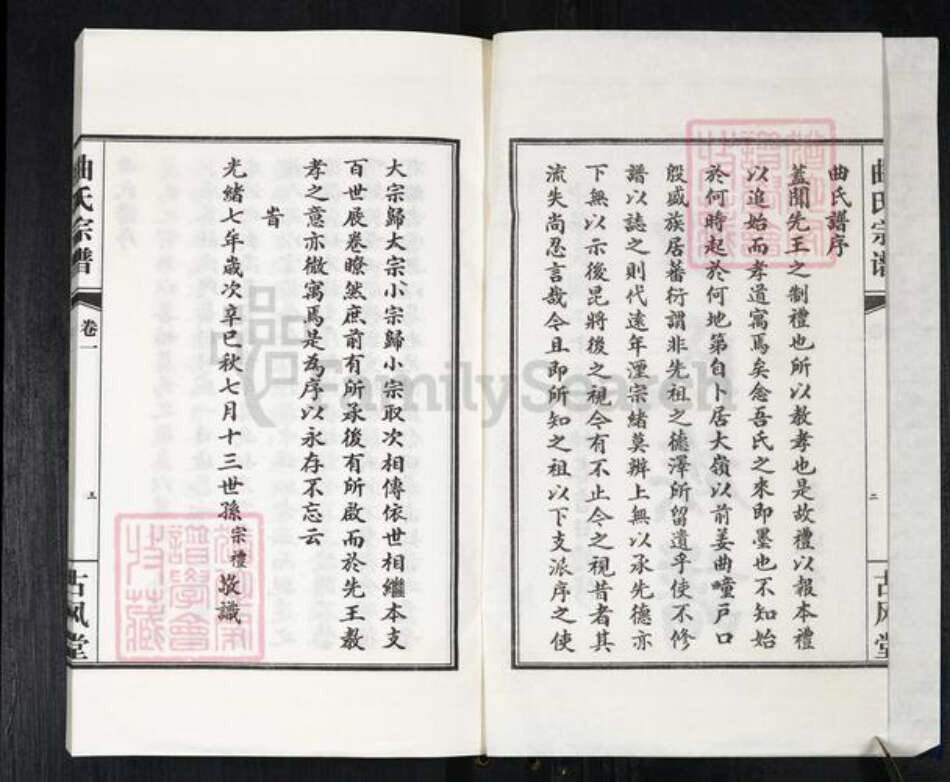 曲氏宗谱
二
古风堂
曲氏譜序
蓋聞先王之制禮也所以教孝也是故禮以報本禮
以追始而孝道寓焉矣念吾氏之來即墨也不知始
於何時起於何地第自卜居大嶺以前姜曲疃戶口
殷盛族居蕃衍謂非先祖之德澤所留遺乎使不修
譜以誌之則代遠年湮宗緒莫辦上無以承先德亦
下無以示後昆將後之視今有不止今之視昔者其
流失尚忍言哉今且即所知之祖以下支派序之使
大宗歸大宗小宗歸小宗取次相傳依世相繼本支
百世展卷瞭然庶前有所承後有所啟而於先王教
孝之意亦微寓焉是為序以永存不忘云
旹
光緒七年歲次辛巳秋七月十三世孫宗禮敬識
曲氏宗谱
卷一
三
古风堂
FamilySearch
譜學會
收藏